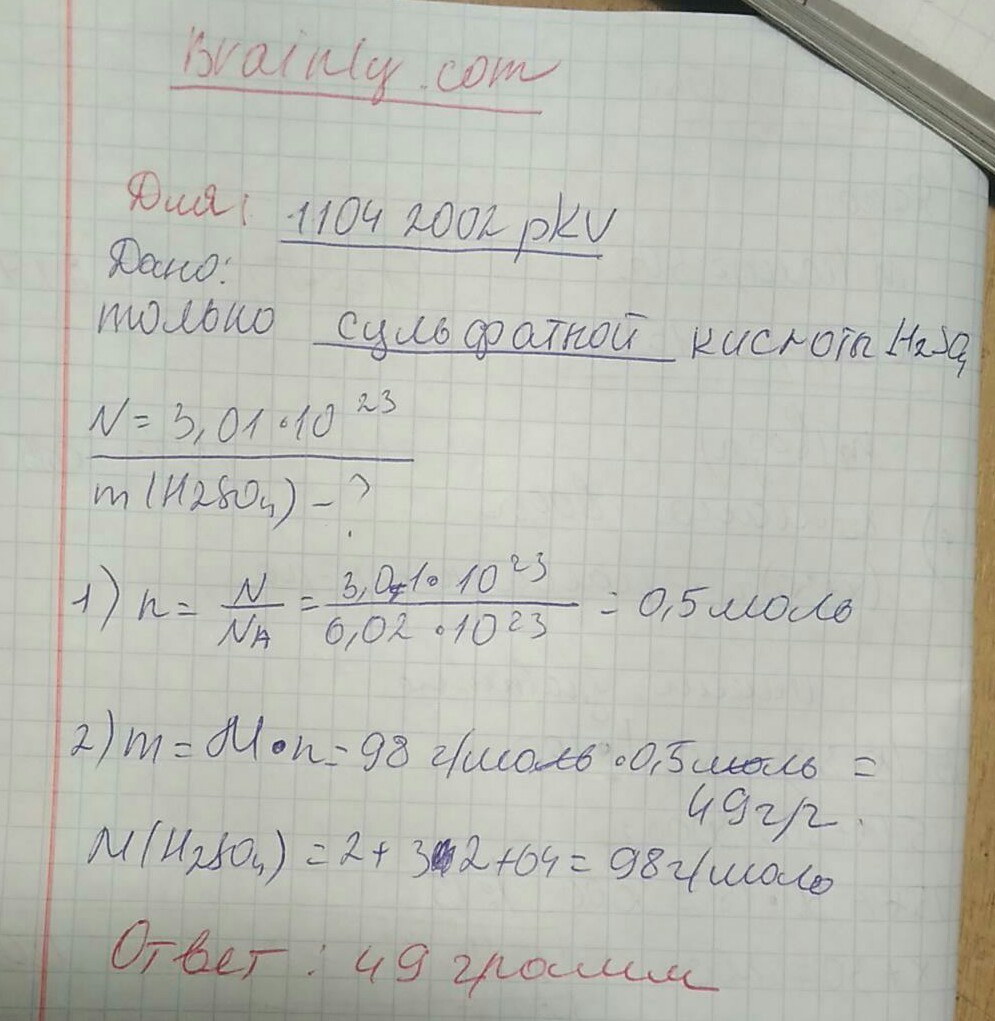 Brainly.com
Для: 11042002pkv
Дано:
только сульфатной кислоты H₂SO₄
N = 3,01·10²³
m(H₂SO₄) - ?
1) n = N/NA = 3,01·10²³/6,02·10²³ = 0,5 моль
2) m = M·n = 98 г/моль·0,5моль =
49гр.
M(H₂SO₄) = 2+32+64 = 98г/моль
Ответ: 49 грамм